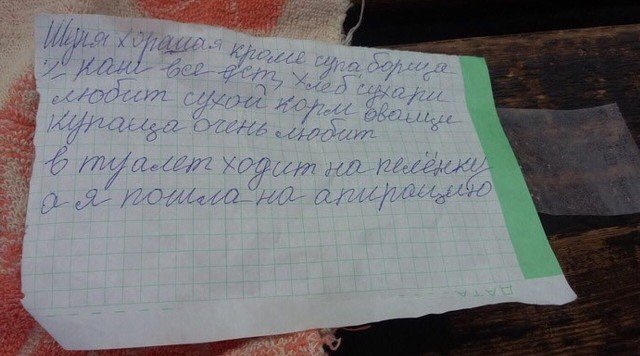 Шуня хорашая кроме супа, борща
и каш все ест, хлеб сухари
любит сухой корм овощи
купаица очень любит
в туалет ходит на пелёнку
а я пошла на апирацию
ДАТА